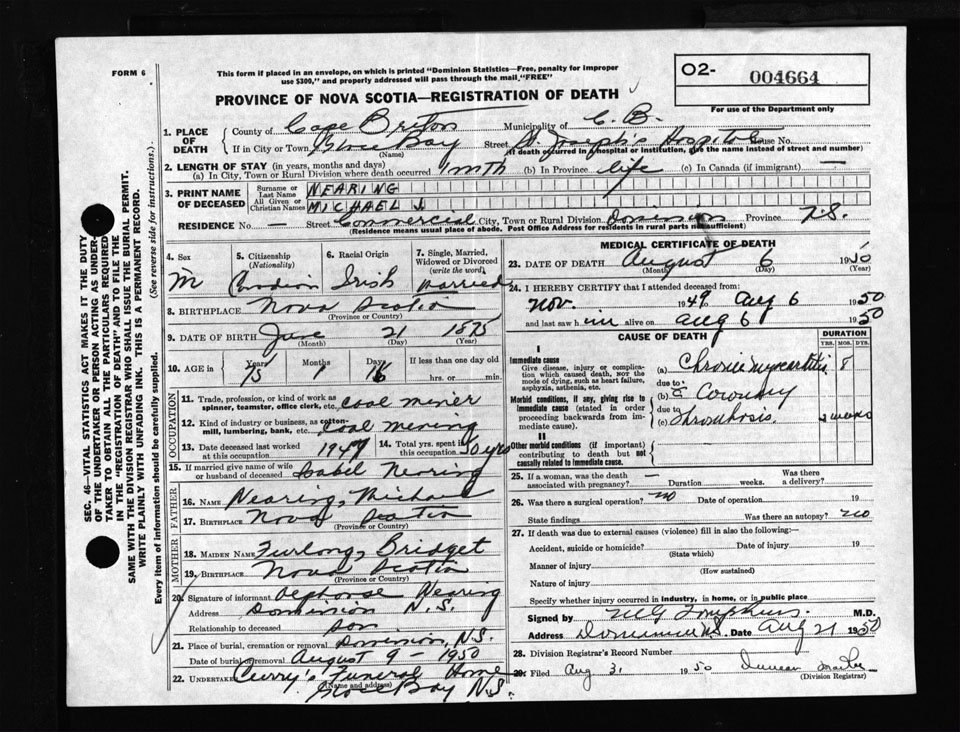 FORM 6
This form if placed in an envelope, on which is printed "Dominion Statistics—Free, penalty for improper
use $300," and properly addressed will pass through the mail "FREE"
PROVINCE OF NOVA SCOTIA—REGISTRATION OF DEATH
O2- 004664
For use of the Department only
SEC. 46—VITAL STATISTICS ACT MAKES IT THE DUTY
OF THE UNDERTAKER OR PERSON ACTING AS UNDER-
TAKER TO OBTAIN ALL THE PARTICULARS REQUIRED
IN THE "REGISTRATION OF DEATH" AND TO FILE THE
SAME WITH THE DIVISION REGISTRAR WHO SHALL ISSUE THE BURIAL PERMIT.
WRITE PLAINLY WITH UNFADING INK. THIS IS A PERMANENT RECORD.
Every item of information should be carefully supplied. (See reverse side for instructions.)
1. PLACE OF DEATH
County of Cape Breton Municipality of C. B.
If in City or Town Glace Bay Street St Joseph's Hospital House No
(Name) (If death occurred in a hospital or institution, give the name instead of street and number)
2. LENGTH OF STAY (in years, months and days)
(a) In City, Town or Rural Division where death occurred 1 mth (b) In Province life (c) In Canada (if immigrant) —
3. PRINT NAME OF DECEASED
Surname or Last Name NEARING
All Given or Christian Names MICHAEL J.
RESIDENCE No — Street Commercial City, Town or Rural Division Dominion Province N.S.
(Residence means usual place of abode. Post Office Address for residents in rural parts not sufficient)
4. Sex 5. Citizenship (Nationality) 6. Racial Origin 7. Single, Married, Widowed or Divorced (write the word)
M Canadian Irish Married
8. BIRTHPLACE Nova Scotia
(Province or Country)
9. DATE OF BIRTH June 21 1875
(Month) (Day) (Year)
10. AGE in Years 75 Months 1 Days 16 If less than one day old
hrs. or min.
OCCUPATION
11. Trade, profession, or kind of work as spinner, teamster, office clerk, etc. coal miner
12. Kind of industry or business, as cotton-mill, lumbering, bank, etc. Coal mining
13. Date deceased last worked at this occupation 1947 14. Total yrs. spent in this occupation 50 yrs
15. If married give name of wife or husband of deceased Isabel Nearing
FATHER
16. NAME Nearing, Michael
17. BIRTHPLACE Nova Scotia
(Province or Country)
MOTHER
18. MAIDEN NAME Furlong, Bridget
19. BIRTHPLACE Nova Scotia
(Province or Country)
20. Signature of informant Alphonse Nearing
Address Dominion N.S.
Relationship to deceased son
21. Place of burial, cremation or removal Dominion, N.S.
Date of burial or removal August 9 - 1950
22. UNDERTAKER Curry's Funeral Home
(Name and address) Glace Bay N.S.
MEDICAL CERTIFICATE OF DEATH
23. DATE OF DEATH August 6 1950
(Month) (Day) (Year)
24. I HEREBY CERTIFY that I attended deceased from
Nov. 1949 Aug 6 1950
and last saw him alive on Aug 6 1950
CAUSE OF DEATH
DURATION
YRS. MOS. DYS.
I
Immediate cause
Give disease, injury or complication which caused death, not the mode of dying, such as heart failure, asphyxia, asthenia, etc.
(a) Chronic myocarditis 8
due to
Morbid conditions, if any, giving rise to immediate cause (stated in order proceeding backwards from immediate cause).
(b) Coronary
due to
(c) Thrombosis. 2 weeks
II
Other morbid conditions (if important) contributing to death but not causally related to immediate cause.
25. If a woman, was the death associated with pregnancy? — Duration weeks. Was there a delivery?
26. Was there a surgical operation? no Date of operation 19
State findings Was there an autopsy? no
27. If death was due to external causes (violence) fill in also the following:
Accident, suicide or homicide? Date of injury 19
(State which)
Manner of injury
(How sustained)
Nature of injury
Specify whether injury occurred in industry, in home, or in public place
Signed by M.D.
Address Dominion N.S. Date Aug 21 1950
28. Division Registrar's Record Number
29. Filed Aug 31 1950 Duncan
(Division Registrar)